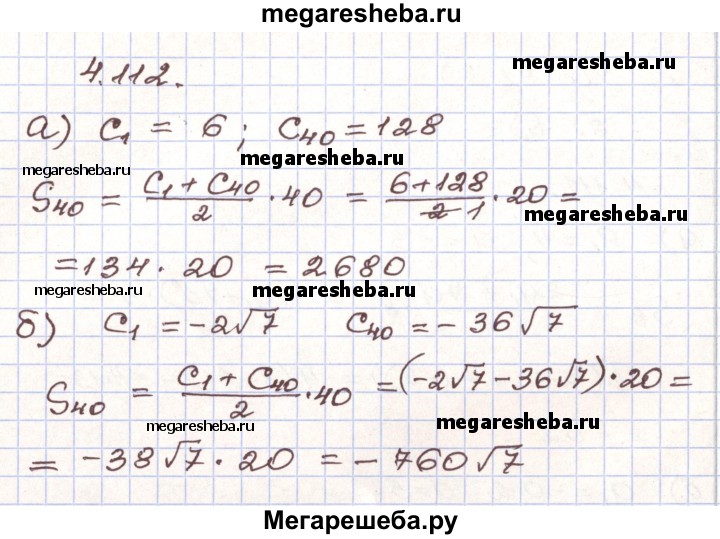 megaresheba.ru
4.112.
megaresheba.ru
а) C₁ = 6; C₄₀ = 128
megaresheba.ru
megaresheba.ru
S₄₀ = (C₁ + C₄₀)/2 · 40 = (6+128)/2 1 · 20 =
megaresheba.ru
= 134 · 20 = 2680
megaresheba.ru
megaresheba.ru
б) C₁ = -2√7 C₄₀ = - 36√7
S₄₀ = (C₁ + C₄₀)/2 · 40 = (-2√7 - 36√7) · 20 =
megaresheba.ru
megaresheba.ru
= -38√7 · 20 = - 760√7
Мегарешеба.ру